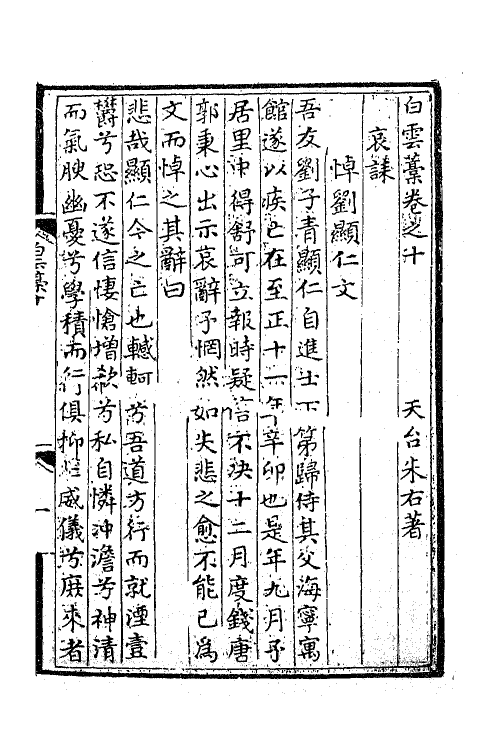 白雲藁卷之十 天台朱右著
哀誄
悼劉顯仁文
吾友劉子青顯仁自進士下第歸侍其父海寧寓
館遂以疾亡在至正十一年辛卯也是年九月予
居里中得舒可立報時疑信不決十二月度錢唐
郭秉心出示哀辭予惘然如失悲之愈不能已爲
文而悼之其辭曰
悲哉顯仁今之亡也轗軻兮吾道方行而就湮壹
欝兮恐不遂信悽愴增欷兮私自憐沖澹兮神清
而氣腴幽憂兮學積而行俱抑威儀兮庶來者
白雲藁十
一